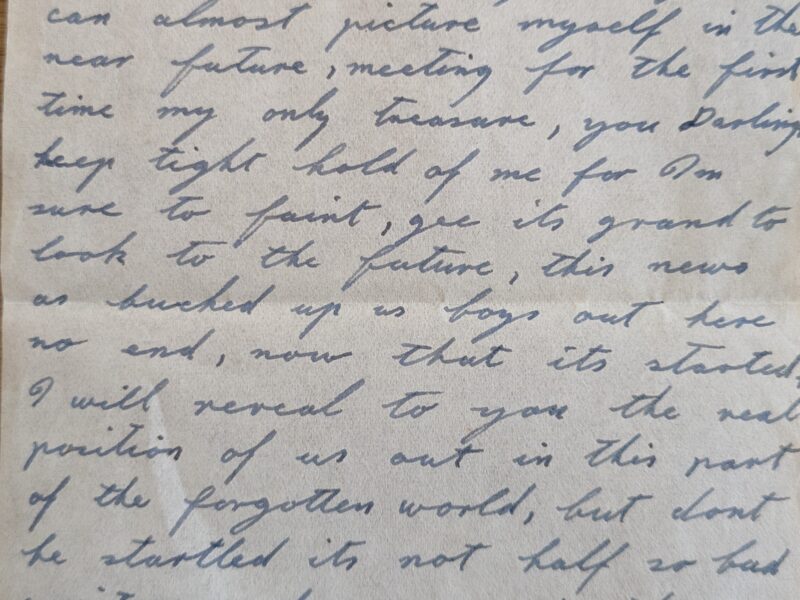 can almost picture myself in the
near future, meeting for the first
time my only treasure, you Darling
keep tight hold of me for Im
sure to faint, gee its grand to
look to the future, this news
as bucked up us boys out here
no end, now that its started,
I will reveal to you the real
position of us out in this part
of the forgotten world, but dont
be startled its not half so bad